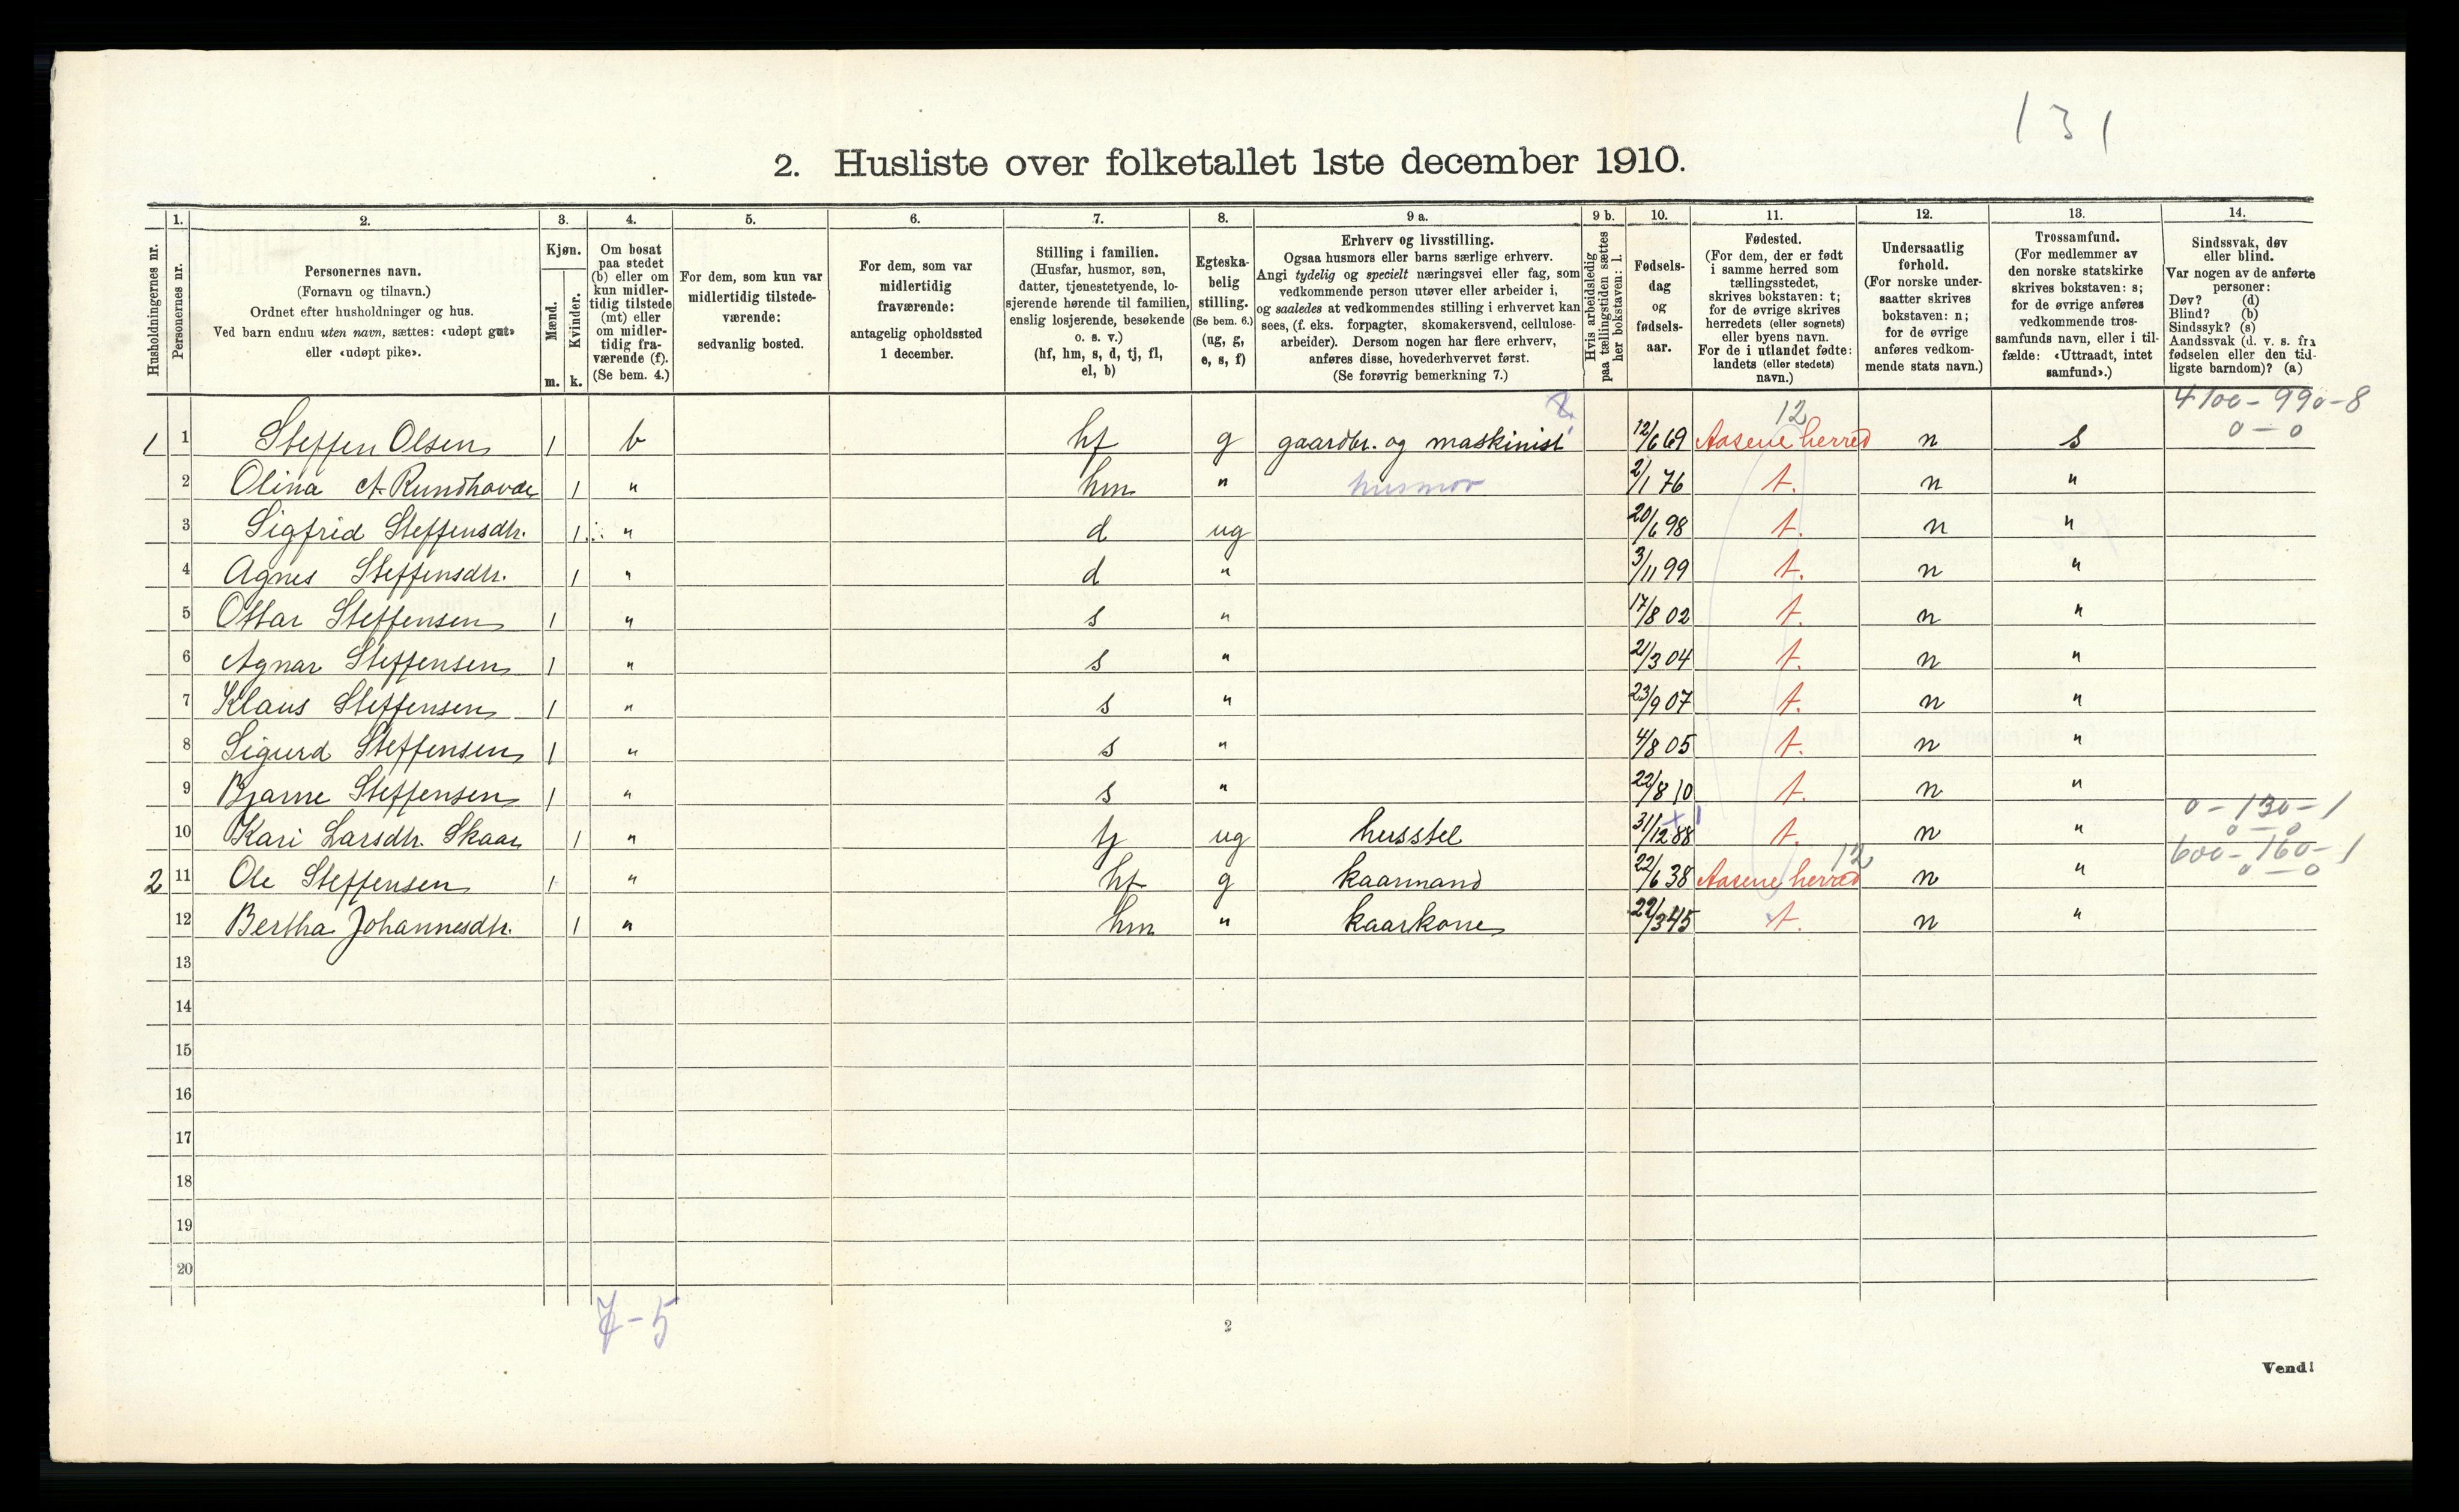 131
2. Husliste over folketallet 1ste december 1910.
Husholdningernes nr.
1. Personernes nr.
2. Personernes navn.
(Fornavn og tilnavn.)
Ordnet efter husholdninger og hus.
Ved barn endnu uten navn, sættes: «udøpt gut»
eller «udøpt pike».
3. Kjøn.
Mænd. m.
Kvinder. k.
4. Om bosat
paa stedet
(b) eller om
kun midler-
tidig tilstede
(mt) eller
om midler-
tidig fra-
værende (f).
(Se bem. 4.)
5. For dem, som kun var
midlertidig tilstede-
værende:
sedvanlig bosted.
6. For dem, som var
midlertidig
fraværende:
antagelig opholdssted
1 december.
7. Stilling i familien.
(Husfar, husmor, søn,
datter, tjenestetyende, lo-
sjerende hørende til familien,
enslig losjerende, besøkende
o. s. v.)
(hf, hm, s, d, tj, fl,
el, b)
8. Egteska-
belig
stilling.
(Se bem. 6.)
(ug, g,
e, s, f)
9 a. Erhverv og livsstilling.
Ogsaa husmors eller barns særlige erhverv.
Angi tydelig og specielt næringsvei eller fag, som
vedkommende person utøver eller arbeider i,
og saaledes at vedkommendes stilling i erhvervet kan
sees, (f. eks. forpagter, skomakersvend, cellulose-
arbeider). Dersom nogen har flere erhverv,
anføres disse, hovederhvervet først.
(Se forøvrig bemerkning 7.)
9 b. Hvis arbeidsledig
paa tællingstiden sættes
her bokstaven: l.
10. Fødsels-
dag
og
fødsels-
aar.
11. Fødested.
(For dem, der er født
i samme herred som
tællingsstedet,
skrives bokstaven: t;
for de øvrige skrives
herredets (eller sognets)
eller byens navn.
For de i utlandet fødte:
landets (eller stedets)
navn.)
12. Undersaatlig
forhold.
(For norske under-
saatter skrives
bokstaven: n;
for de øvrige
anføres vedkom-
mende stats navn.)
13. Trossamfund.
(For medlemmer av
den norske statskirke
skrives bokstaven: s;
for de øvrige anføres
vedkommende tros-
samfunds navn, eller i til-
fælde: «Uttraadt, intet
samfund».)
14. Sindssvak, døv
eller blind.
Var nogen av de anførte
personer:
Døv? (d)
Blind? (b)
Sindssyk? (s)
Aandssvak (d. v. s. fra
fødselen eller den tid-
ligste barndom)? (a)
12 4100-990-8
1 1 Steffen Olsen 1 b hf g gaardbr. og maskinist 12/6 69 Aasene herred n s 0-0
2 Olina A Rundhovde 1 " hm " husmor 2/1 76 t. n "
3 Sigfrid Steffensdtr. 1 " d ug 20/6 98 t. n "
4 Agnes Steffensdtr. 1 " d " 3/11 99 t. n "
5 Ottar Steffensen 1 " s " 17/8 02 t. n "
6 Agnar Steffensen 1 " s " 21/3 04 t. n "
7 Klaus Steffensen 1 " s " 23/9 07 t. n "
8 Sigurd Steffensen 1 " s " 4/8 05 t. n "
9 Bjarne Steffensen 1 " s " 22/8 10 t. n "
0-130-1
10 Kari Larsdtr. Skaar 1 " tj ug husstel 31/12 88 t. n " 0-0
12 600-160-1
2 11 Ole Steffensen 1 " hf g kaarmand 22/6 38 Aasene herred n " 0-0
12 Bertha Johannesdtr. 1 " hm " kaarkone 22/3 45 t. n "
13
14
15
16
17
18
19
20
7-5
2
Vend!